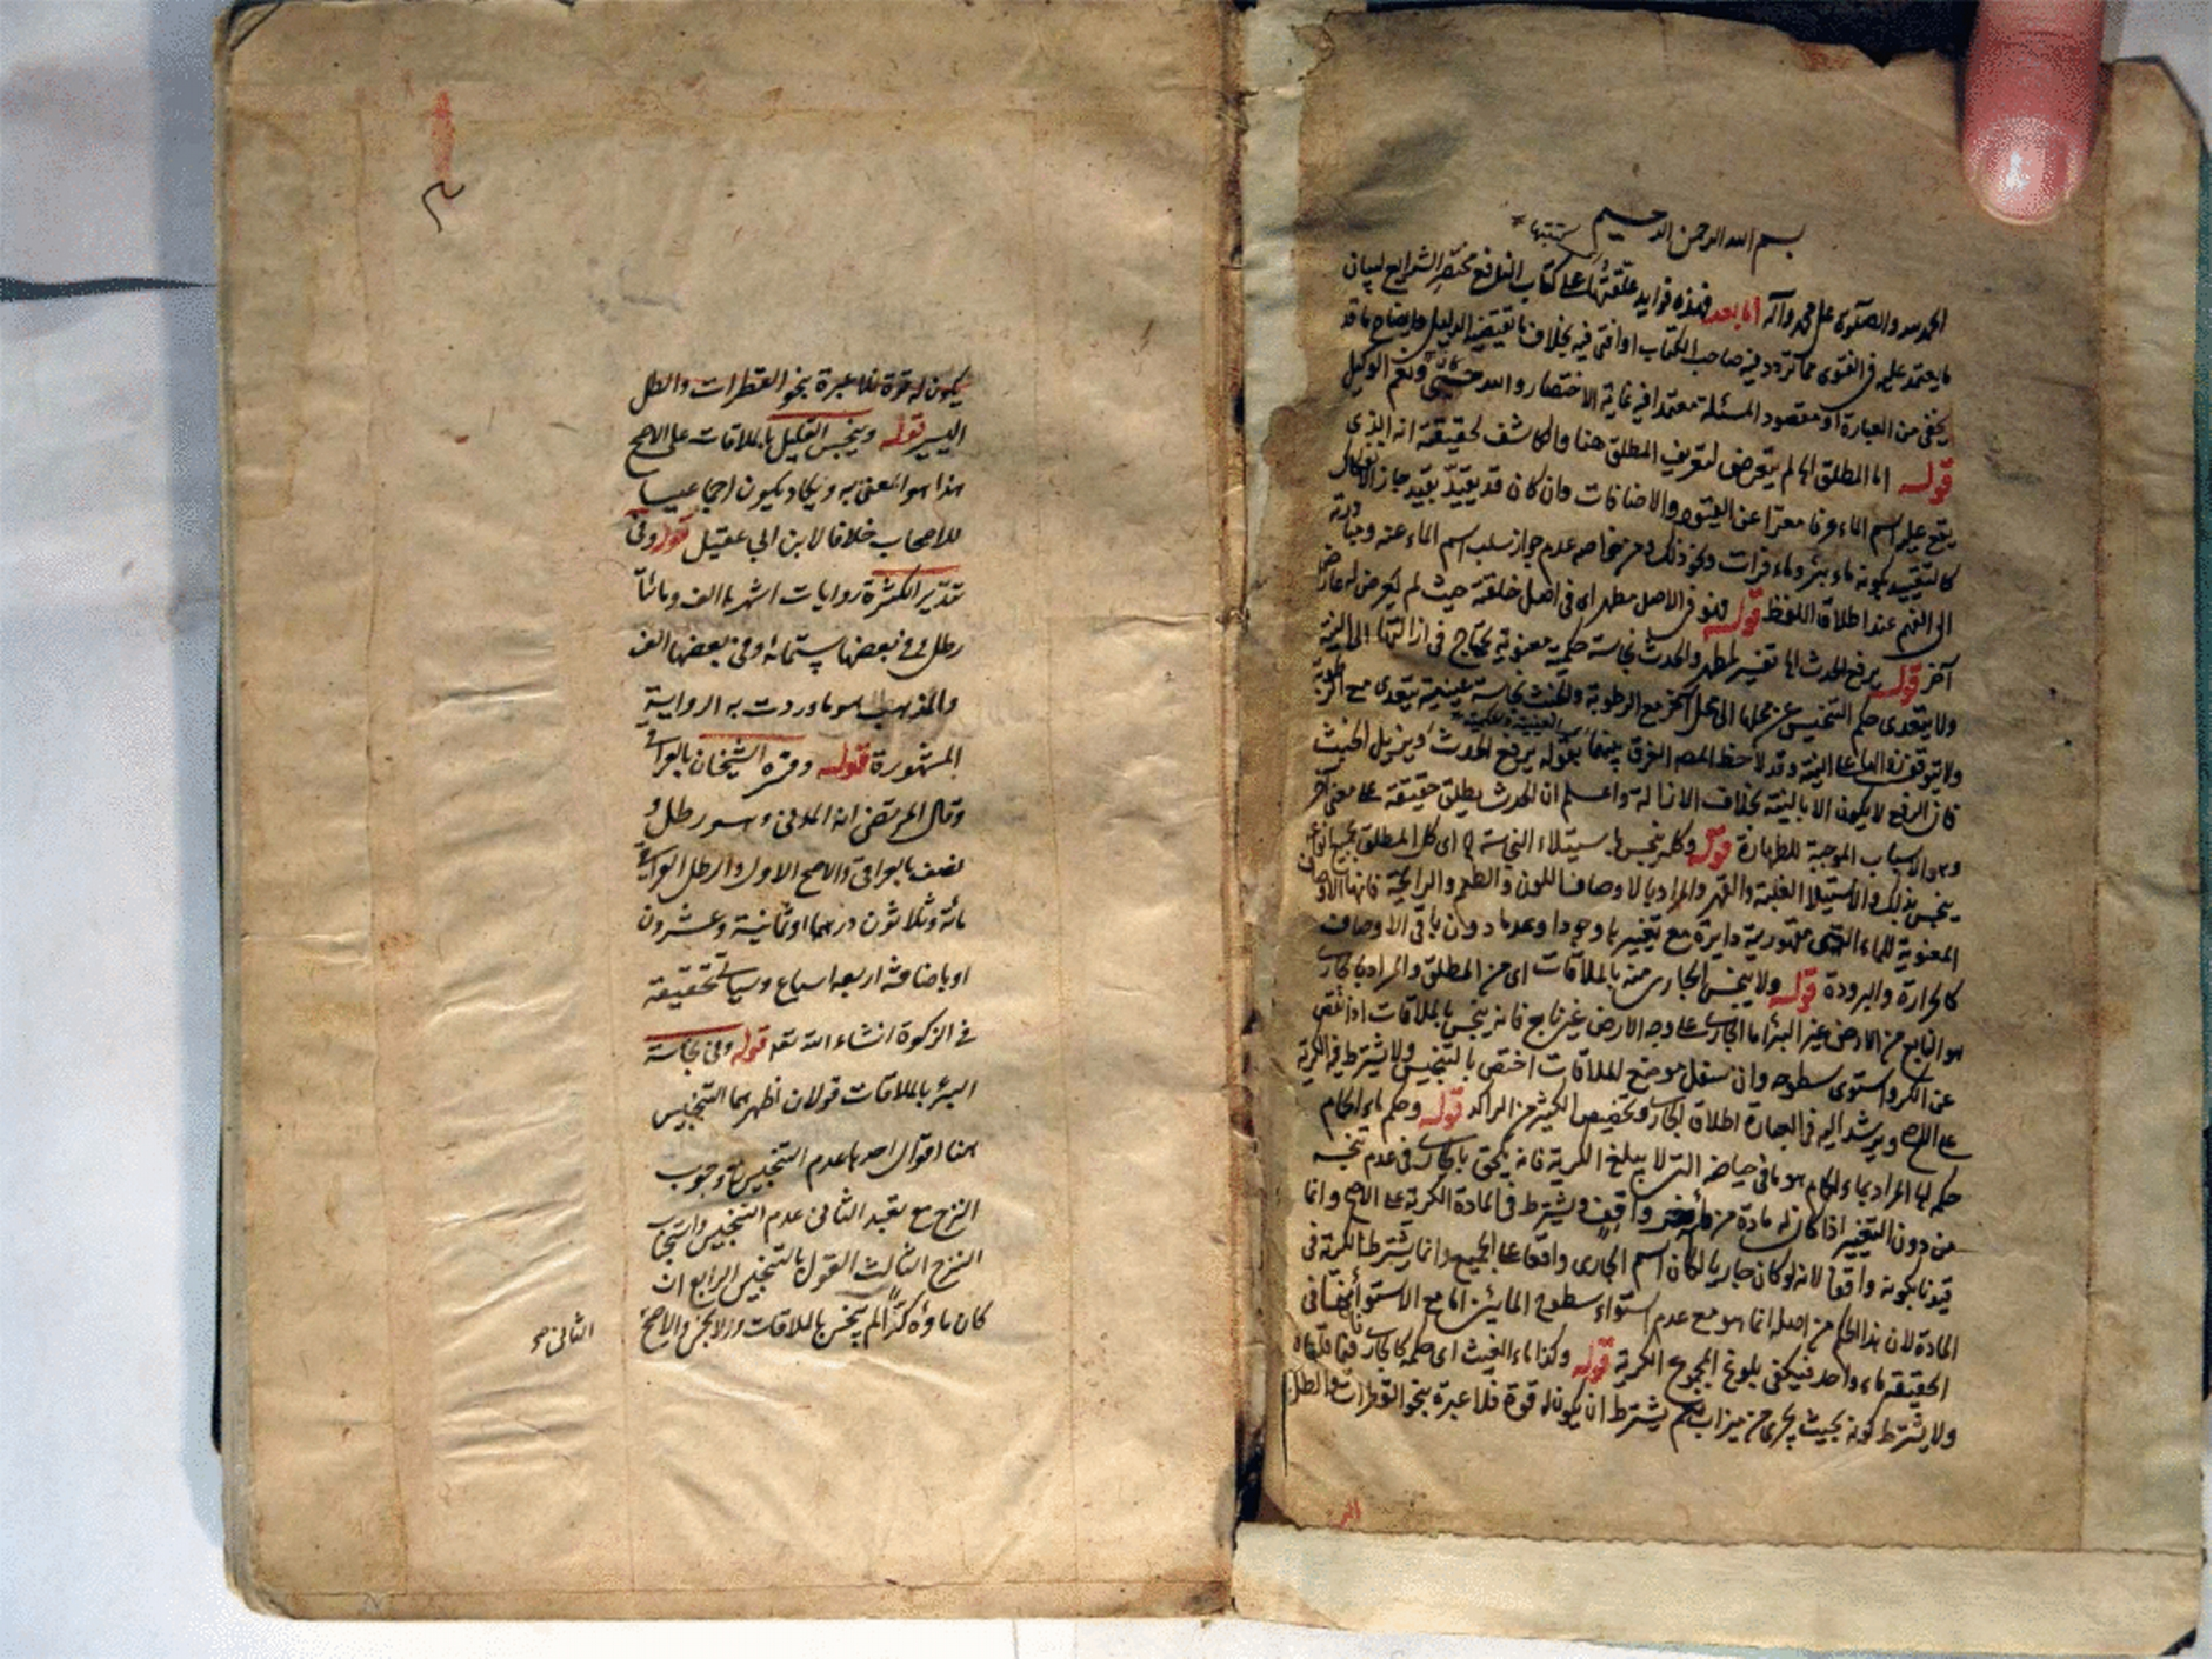 بسم الله الرحمن الرحيم
الحمد لله والصلوة على محمد وآله اما بعد فهذه فوايد علقتها على كتاب النافع مختصر الشرايع لبيان
ما يعتمد عليه في الفتوى مما تردد فيه صاحب الكتاب او افتى فيه بخلاف ما يقتضيه الدليل وايضاح ما قد
يخفى من العبارة او مقصود المسئلة معتمدا فيه غاية الاختصار والله حسبي ونعم الوكيل
قوله اما المطلق لم يتعرض لتعريف المطلق هنا والكاشف لحقيقته انه الذي
يقع عليه اسم الماء عرفا معرا عن القيود والاضافات وان كان قد يقيد بقيد جاز
كالتقييد بكونه ماء بئر وماء فرات ونحو ذلك ومن خواصه عدم جواز سلب اسم الماء عنه ومبادرته
الى الفهم عند اطلاق اللفظ قوله فهو في الاصل مطهر اى في اصل خلقته حيث لم يعرض له عارض
آخر قوله يرفع الحدث تفسير لمطهر والحدث نجاسة حكمية معنوية يحتاج في ازالتها الى النية
ولا يتعدى حكم التنجيس عن محلها الى محل آخر مع الرطوبة والخبث نجاسة عينية يتعدى مع الرطوبة
ولا يتوقف زوالها على النية وقد لاحظ المصه الفرق بينهما بقوله يرفع الحدث ويزيل الخبث
فان الرفع لا يكون الا بالنية بخلاف الازالة واعلم ان الحدث يطلق حقيقة على معنى آخر
وهو الاسباب الموجبة للطهارة قوله وكله ينجس باستيلاء النجاسة اى كل المطلق بجميع انواعه
ينجس بذلك والاستيلا الغلبة والقهر والمراد بالاوصاف اللون والطعم والرايحة فانها الاوصاف
المعنوية للماء التي مقهورية دايرة مع تغييرها وجودا وعدما دون باقي الاوصاف
كالحرارة والبرودة قوله ولا ينجس الجارى منه بالملاقات اى من المطلق والمراد بالجارى
هو النابع من الارض غير البئر اما الجارى على وجه الارض غير نابع فانه ينجس بالملاقات اذا نقص
عن الكر واستوى سطوحه وان سفل موضع الملاقات اختص بالتنجيس ولا يشترط فيه الكرية
على الاصح ويرشد اليه في العبارة اطلاق الجارى وتخصيص الكثير من الراكد قوله وحكم ماء الحمام
حكمه المراد بماء الحمام هو ما في حياضه التي لا يبلغ الكرية فانه يلحق بالجارى في عدم نجسه
من دون التغيير اذا كان له مادة من واقف ويشترط في المادة الكرية على الاصح وانما
قيدنا بكونه واقفا لانه لو كان جاريا لكان اسم الجارى واقعا على الجميع وانما يشترط الكرية في
المادة لان هذا الحكم من اصله انما هو مع عدم استواء سطوح المائين اما مع الاستواء
الحقيقة ماء واحد فيكفي بلوغ المجموع الكرية قوله وكذا ماء الغيث اى حكمه كالجارى
ولا يشترط كونه بحيث يجرى من ميزاب نعم يشترط ان يكون له قوة فلا عبرة بنحو القطرات والطل
يكون له قوة فلا عبرة بنحو القطرات والطل
اليسير قوله وينجس القليل بالملاقات على الاصح
هذا هو المعنى به ويكاد يكون اجماعيا
للاصحاب خلافا لابن ابي عقيل قوله وفي
تقدير الكثرة روايات اشهرها الف ومائتا
رطل وفي بعضها ستمائة وفي بعضها الف
والمذهب هو ما وردت به الرواية
المشهورة قوله وفسره الشيخان بالعراقى
وقال المرتضى انه المدنى وهو رطل و
نصف بالعراقى والاصح الاول والرطل العراقى
مائة وثلاثون درهما او ثمانية وعشرون
او باضافة اربعه اسباع وسياتى تحقيقه
في الزكوة انشاء الله تعه قوله وفي نجاسة
البئر بالملاقات قولان اظهرهما التنجيس
هنا اقوال احدها عدم التنجيس ووجوب
النزح مع تعبد الثانى عدم التنجيس واستحباب
النزح الثالث القول بالتنجيس الرابع ان
كان ماؤه كرا لم ينجس بالملاقات والا نجس والاصح
الثانى